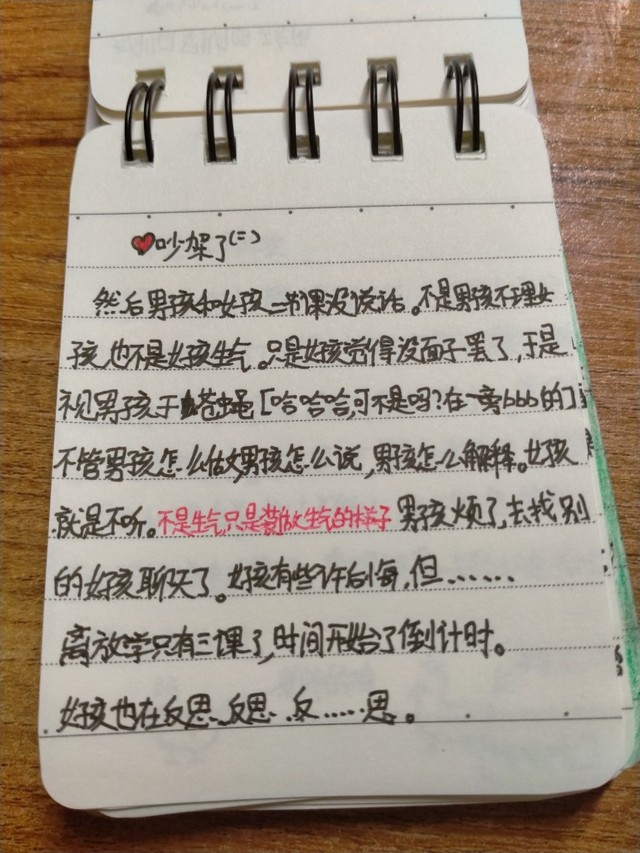 吵架了(二)
然后男孩和女孩一节课没说话。不是男孩不理女
孩,也不是女孩生气。只是女孩觉得没面子罢了,于是
视男孩于苍蝇[哈哈哈,可不是吗?在一旁bbb的]
不管男孩怎么做,男孩怎么说,男孩怎么解释。女孩
就是不听。不是生气只是装做生气的样子 男孩烦了,去找别
的女孩聊天了。女孩有些许后悔,但……
离放学只有三课了,时间开始了倒计时。
女孩也在反思、反思、反……思。